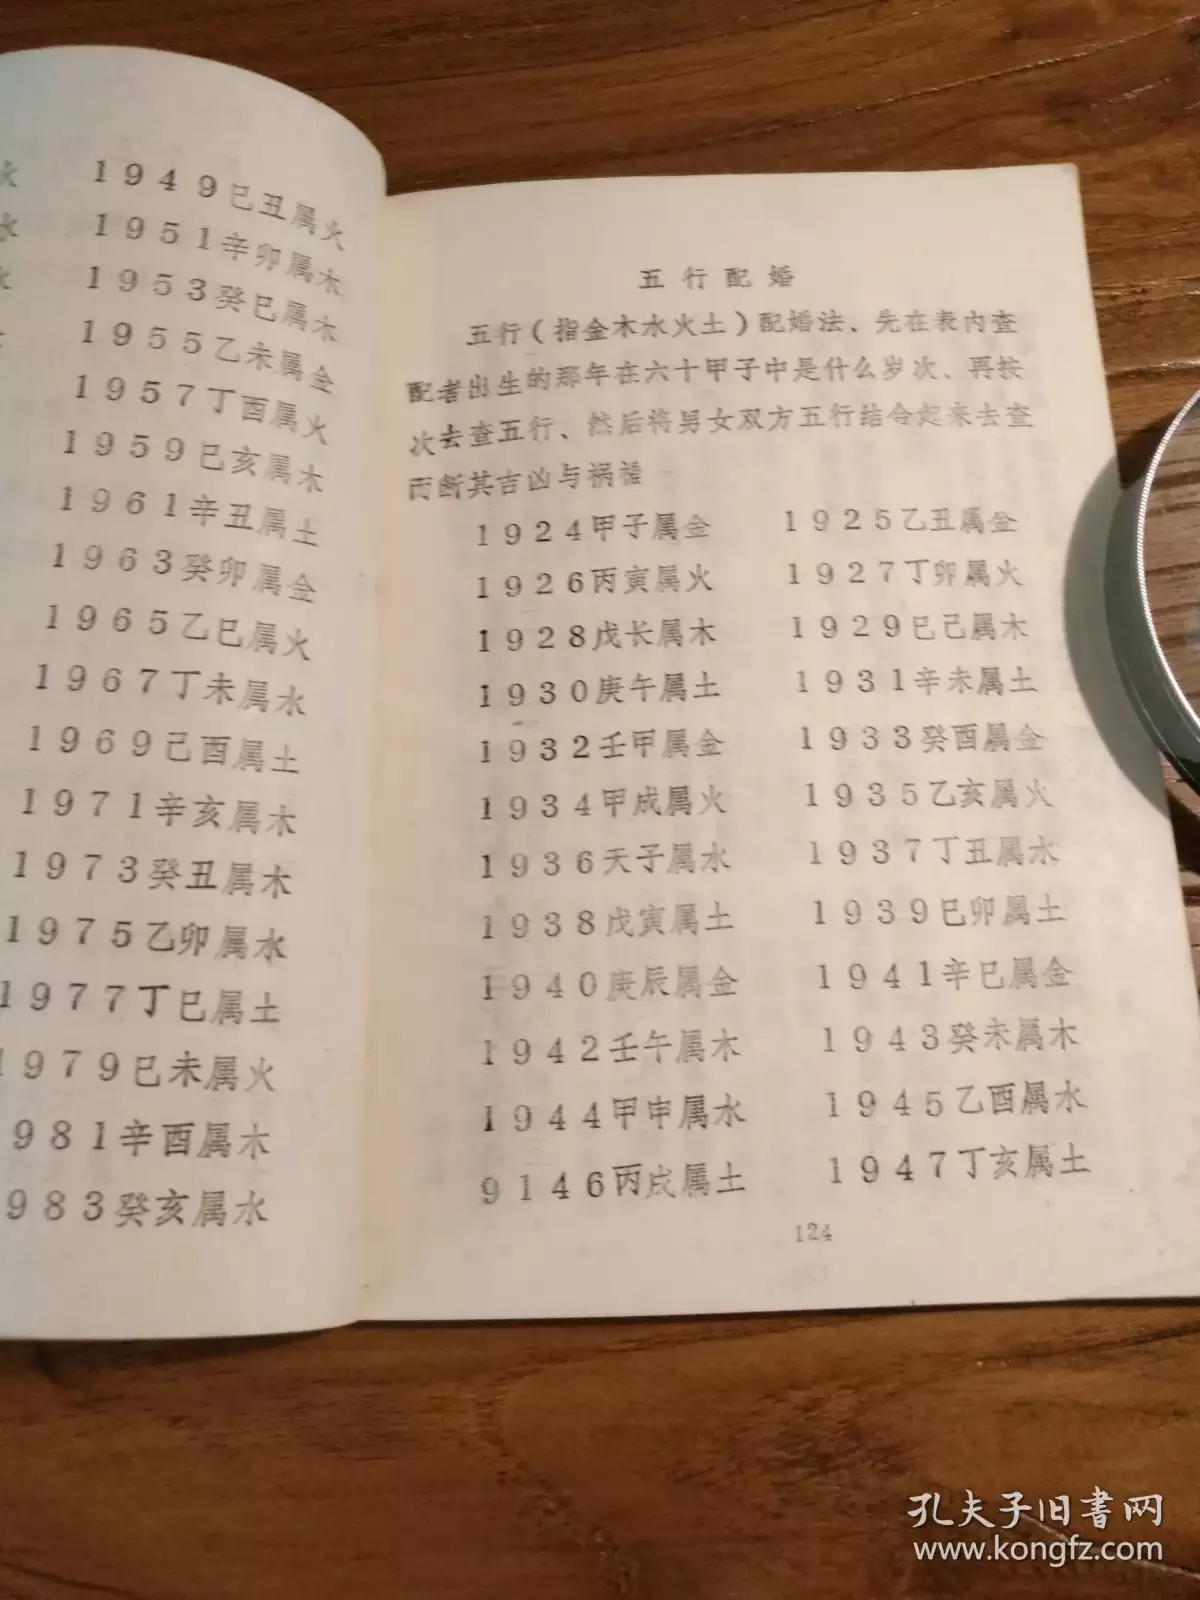 火
1949巳丑属火
水
1951辛卯属木
水
1953癸巳属木
1955乙未属金
1957丁酉属火
1959巳亥属木
1961辛丑属土
1963癸卯属金
1965乙巳属火
1967丁未属水
1969己酉属土
1971辛亥属木
1973癸丑属木
1975乙卯属水
1977丁巳属土
1979巳未属火
981辛酉属木
983癸亥属水
五行配婚
五行(指金木水火土)配婚法、先在表内查
配者出生的那年在六十甲子中是什么岁次、再按
次去查五行、然后将男女双方五行结合起来去查
而断其吉凶与祸福
1924甲子属金 1925乙丑属金
1926丙寅属火 1927丁卯属火
1928戊长属木 1929巳己属木
1930庚午属土 1931辛未属土
1932壬甲属金 1933癸酉属金
1934甲成属火 1935乙亥属火
1936天子属水 1937丁丑属水
1938戊寅属土 1939巳卯属土
1940庚辰属金 1941辛巳属金
1942壬午属木 1943癸未属木
1944甲申属水 1945乙酉属水
9146丙戌属土 1947丁亥属土
124
孔夫子旧書网
www.kongfz.com